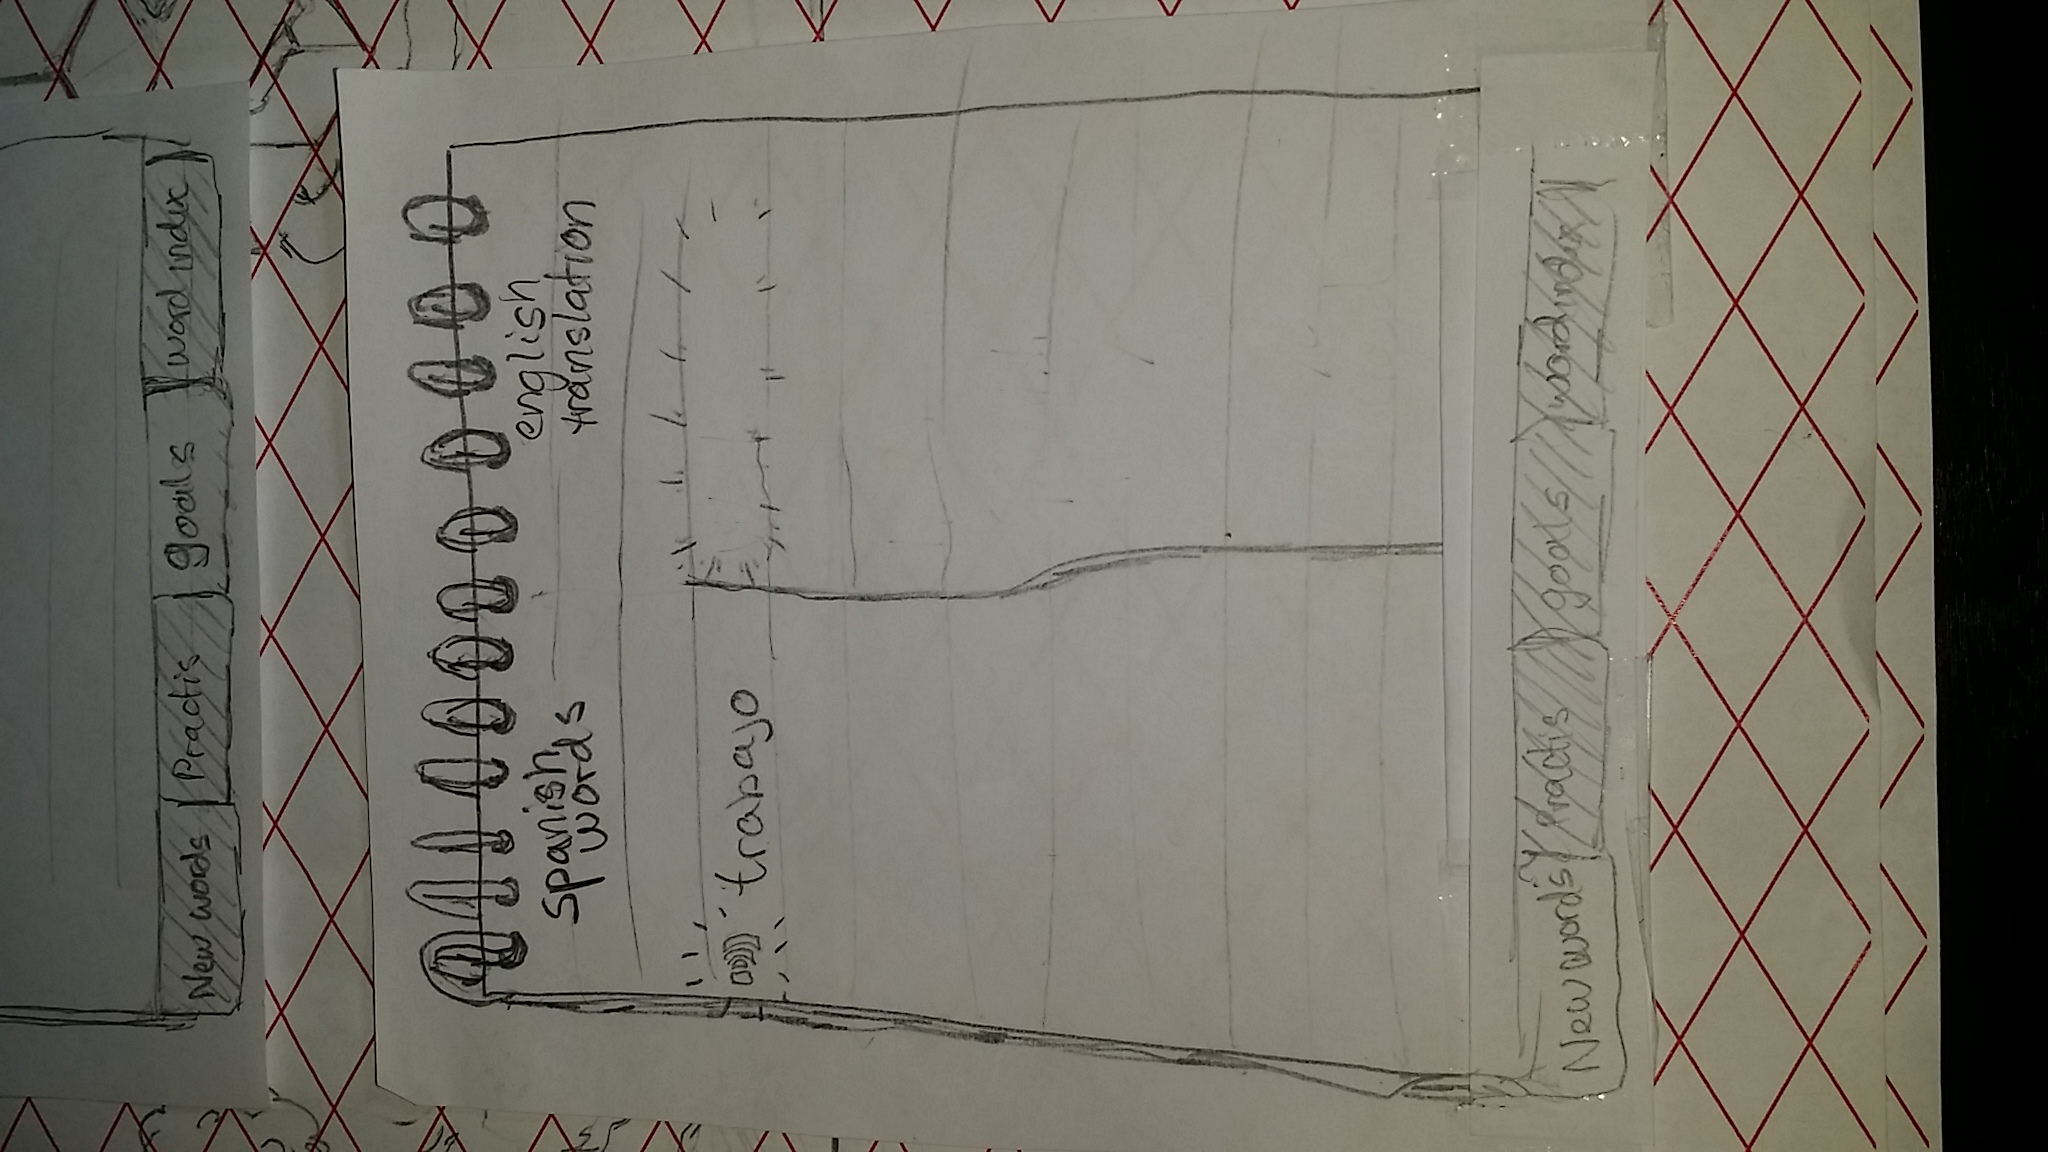 New words Practis goals word index
Spanish words
english translation
trabajo
New words Practis goals word index